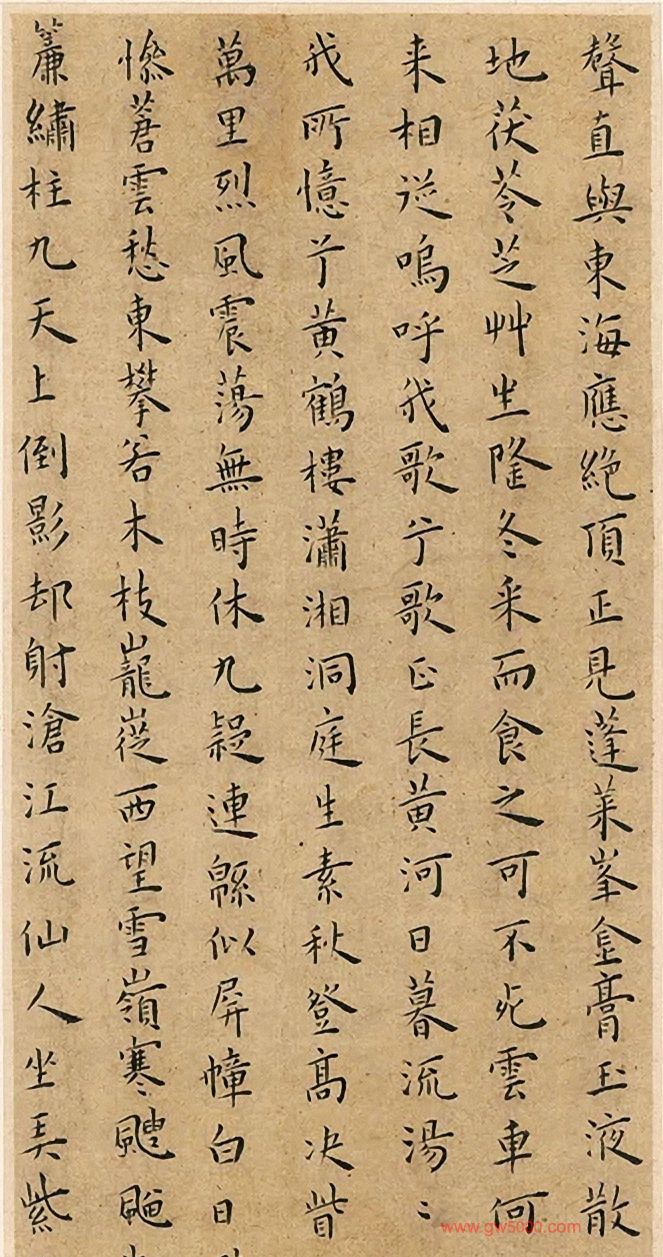 聲直與東海應絕頂正見蓬萊峯金膏玉液散
地茯苓芝艸生隆冬采而食之可不死雲車何
来相從嗚呼我歌兮歌正長黃河日暮流湯〻
我所憶兮黃鶴樓瀟湘洞庭生素秋登高决眥
萬里烈風震蕩無時休九疑連緜似屏幛白日
慘莙雲愁東攀若木枝巃嵸西望雪嶺寒颼飀
簾繡柱九天上倒影却射滄江流仙人坐美紫
www.gw5000.com